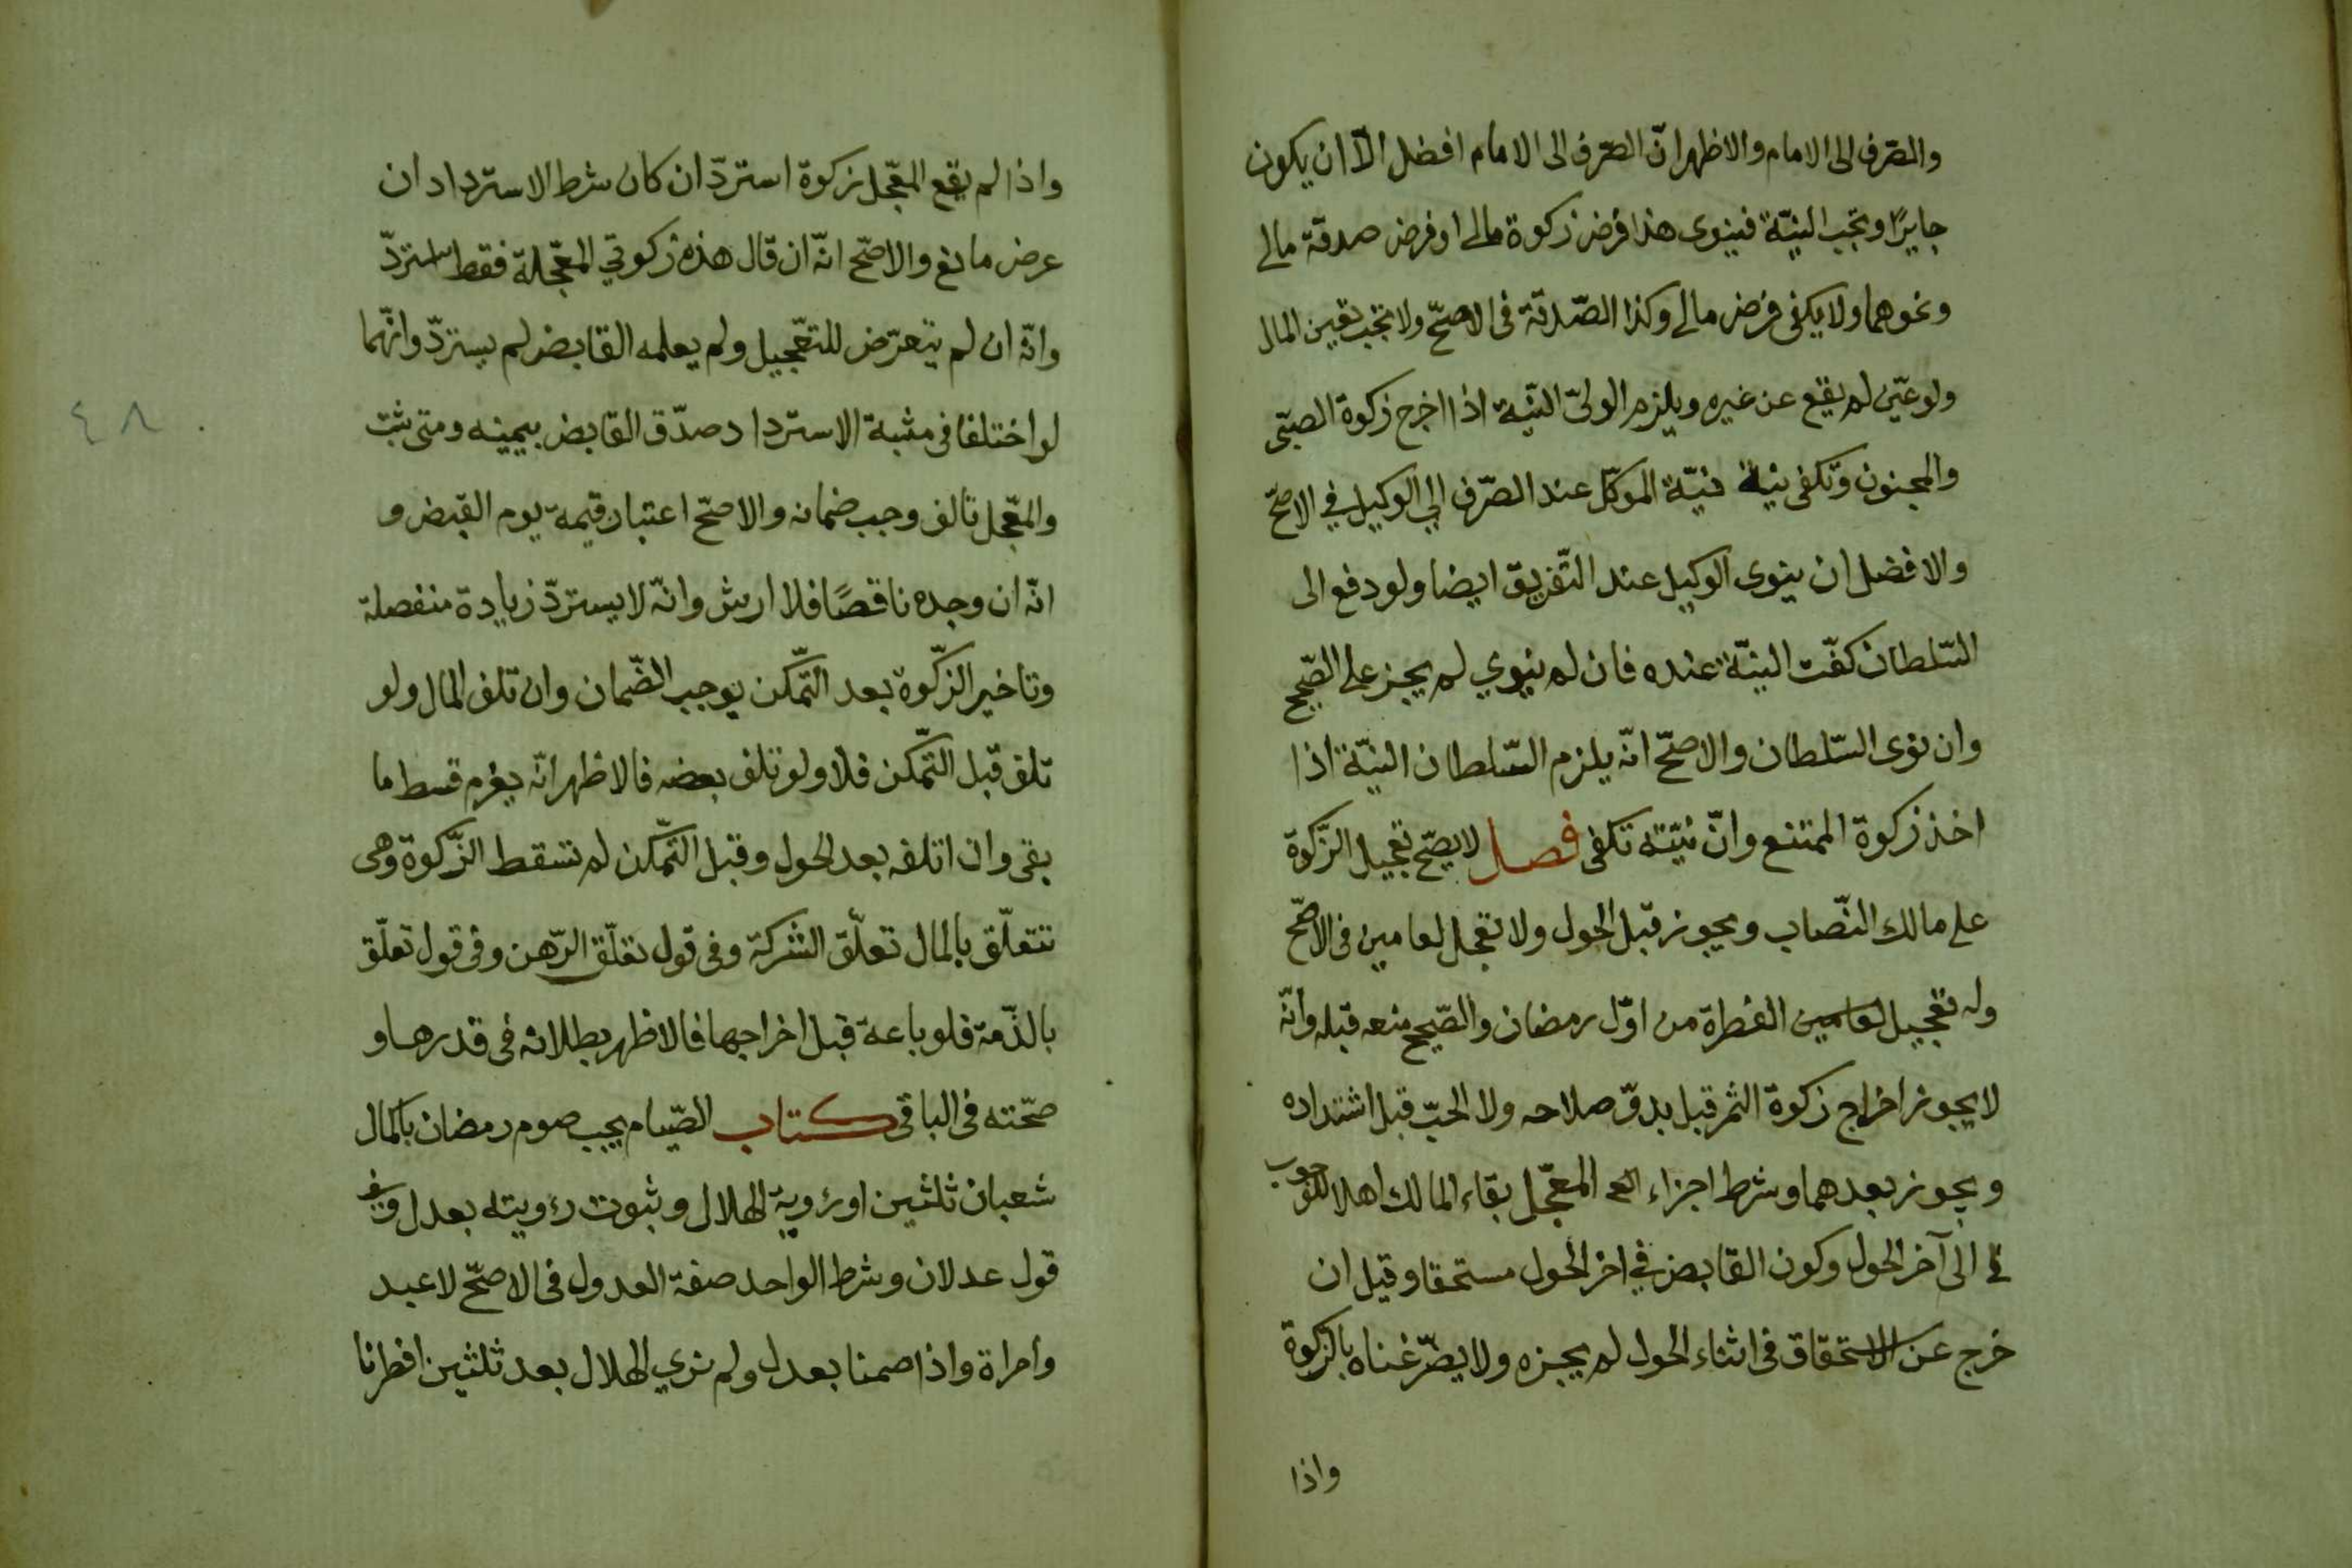 والصّرف الى الامام والاظهر انّ الصّرف الى الامام افضل الّا ان يكون
جايرًا وتجب النيّة فينوى هذا فرض زكوة مالى او فرض صدقة مالى
ونحوهما ولا يكفى فرض مالى وكذا الصّدقة فى الاصحّ ولا تجب تعيين المال
ولو عيّن لم يقع عن غيره ويلزم الولىّ النيّة اذا اخرج زكوة الصبّى
والمجنون وتكفى نية نيّة الموكّل عند الصّرف الي الوكيل في الاصحّ
والافضل ان ينوى الوكيل عند التّفريق ايضا ولو دفع الى
السّلطان كفّت النيّة عنده فان لم ينوي لم يجز على الصّحيح
وان نوى السّلطان والاصحّ انّه يلزم السّلطان النيّة اذا
اخذ زكوة الممتنع وانّ نيّته تكفى فصل لا يصحّ تعجيل الزّكوة
على مالك النّصاب ويجوز قبل الحول ولا تعجل لعامين فى الاصحّ
وله تعجيل لعامين الفطرة من اوّل رمضان والصّحيح منعه قبله وانّه
لا يجوز اخراج زكوة الثمر قبل بدوّ صلاحه ولا الحبّ قبل اشتداده
ويجوز بعدهما وشرط اجزاء المعجّل بقاء المالك اهلا للوجوب
الى آخر الحول وكون القابض في اخر الحول مستحقا وقيل ان
خرج عن الاستحقاق فى اثناء الحول لم يجزه ولا يضرّ غناه بالزكوة
واذا
واذا لم يقع المعجّل زكوة استردّ ان كان شرط الاسترداد ان
عرض مانع والاصحّ انّه ان قال هذه زكوتي المعجّلة فقط استردّ
وانّه ان لم يتعرّض للتعّجيل ولم يعلمه القابض لم يستردّ وانّهما
لو اختلفا فى مثبة الاسترداد صدّق القابض بيمينه ومتى ثبت
والمعّجل تالف وجب ضمانه والاصحّ اعتبار قيمة يوم القبض و
انّه ان وجده ناقصًا فلا ارش وانّه لا يستردّ زيادة منفصلة
وتاخير الزّكوة بعد التّمكن يوجب الضّمان وان تلف المال ولو
تلف قبل التّمكن فلا ولو تلف بعضه فالاظهر انّه يغرم قسط ما
بقى وان اتلفه بعد الحول وقبل التّمكن لم تسقط الزّكوة وهى
تتعلّق بالمال تعلّق الشركة وفى قول تعلّق الرّهن وفى قول تعلّق
بالذّمة فلو باعة قبل اخراجها فالاظهر بطلانه فى قدرها و
صحّته فى الباقى كتاب الصّيام يجب صوم رمضان باكمال
شعبان ثلثين او رؤية الهلال وثبوت رؤيته بعدل وفى
قول عدلان وشرط الواحد صفة العدول فى الاصحّ لا عبد
وامراة واذا صمنا بعدل ولم نري الهلال بعد ثلثين افطرنا
٤٨